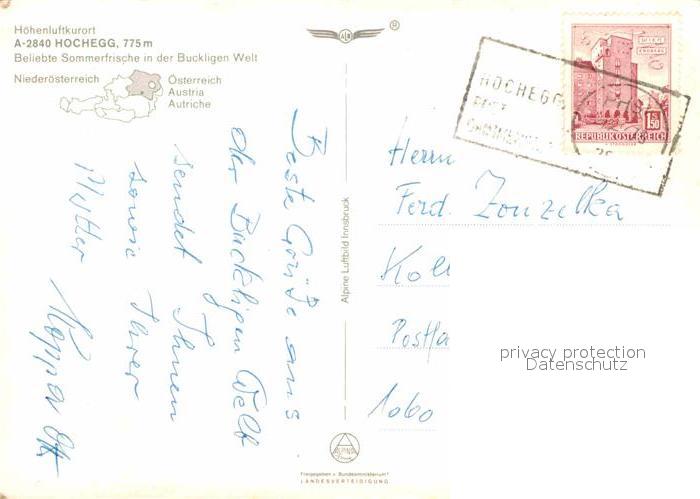 Höhenluftkurort
A-2840 HOCHEGG, 775 m
Beliebte Sommerfrische in der Buckligen Welt
Niederösterreich
Österreich
Austria
Autriche
Beste Grüße aus
der Buckligen Welt
sendet Ihnen
sowie Ihrer
Mutter
Alpine Luftbild Innsbruck
ALPINE
Freigegeben v. Bundesministerium f.
LANDESVERTEIDIGUNG
®
HOCHEGG
POST
WIEN
ERDBERG
1.50
REPUBLIK ÖSTERREICH
Herrn
Ferd. Zonzelka
Postfa
1060
privacy protection
Datenschutz